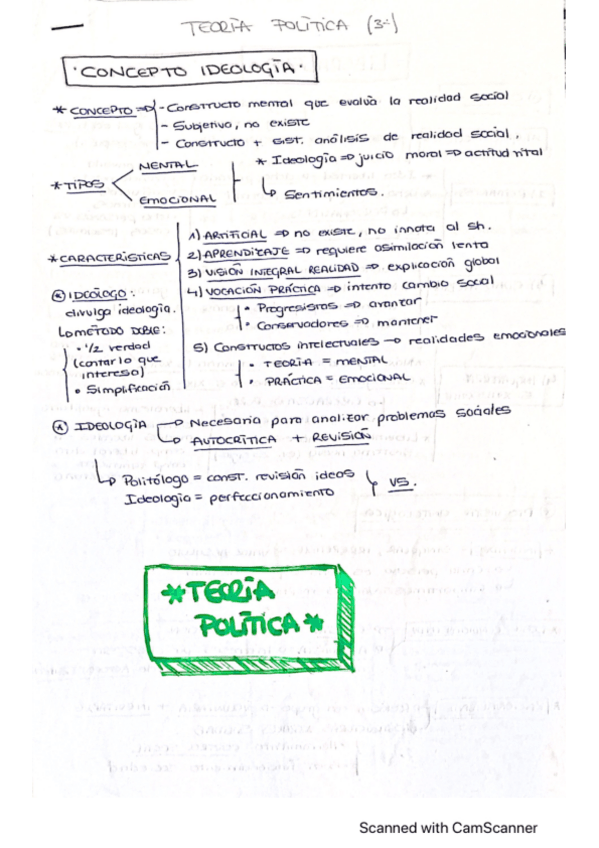 TEORÍA POLÍTICA (3º)
· CONCEPTO IDEOLOGÍA ·
* CONCEPTO => - Constructo mental que evalúa la realidad social
- Subjetivo, no existe
- Constructo + sist. análisis de realidad social.
* TIPOS
MENTAL
EMOCIONAL
* Ideología => juicio moral => actitud vital
↳ Sentimientos.
* CARACTERÍSTICAS
1) ARTIFICIAL => no existe, no innata al sh.
2) APRENDIZAJE => requiere asimilación lenta
3) VISIÓN INTEGRAL REALIDAD => explicación global
4) VOCACIÓN PRÁCTICA => intento cambio social
• Progresistas => avanzar
• Conservadores => mantener
5) Constructos intelectuales → realidades emocionales
• TEORÍA = MENTAL
• PRÁCTICA = EMOCIONAL
IDEÓLOGO:
divulga ideología.
↳ MÉTODO DOBLE:
• 1/2 verdad
(contar lo que
interesa)
• Simplificación
IDEOLOGÍA → Necesaria para analizar problemas sociales
↳ AUTOCRÍTICA + REVISIÓN
↳ Politólogo = const. revisión ideas
Ideología = perfeccionamiento
VS.
*TEORÍA
POLÍTICA*
Scanned with CamScanner